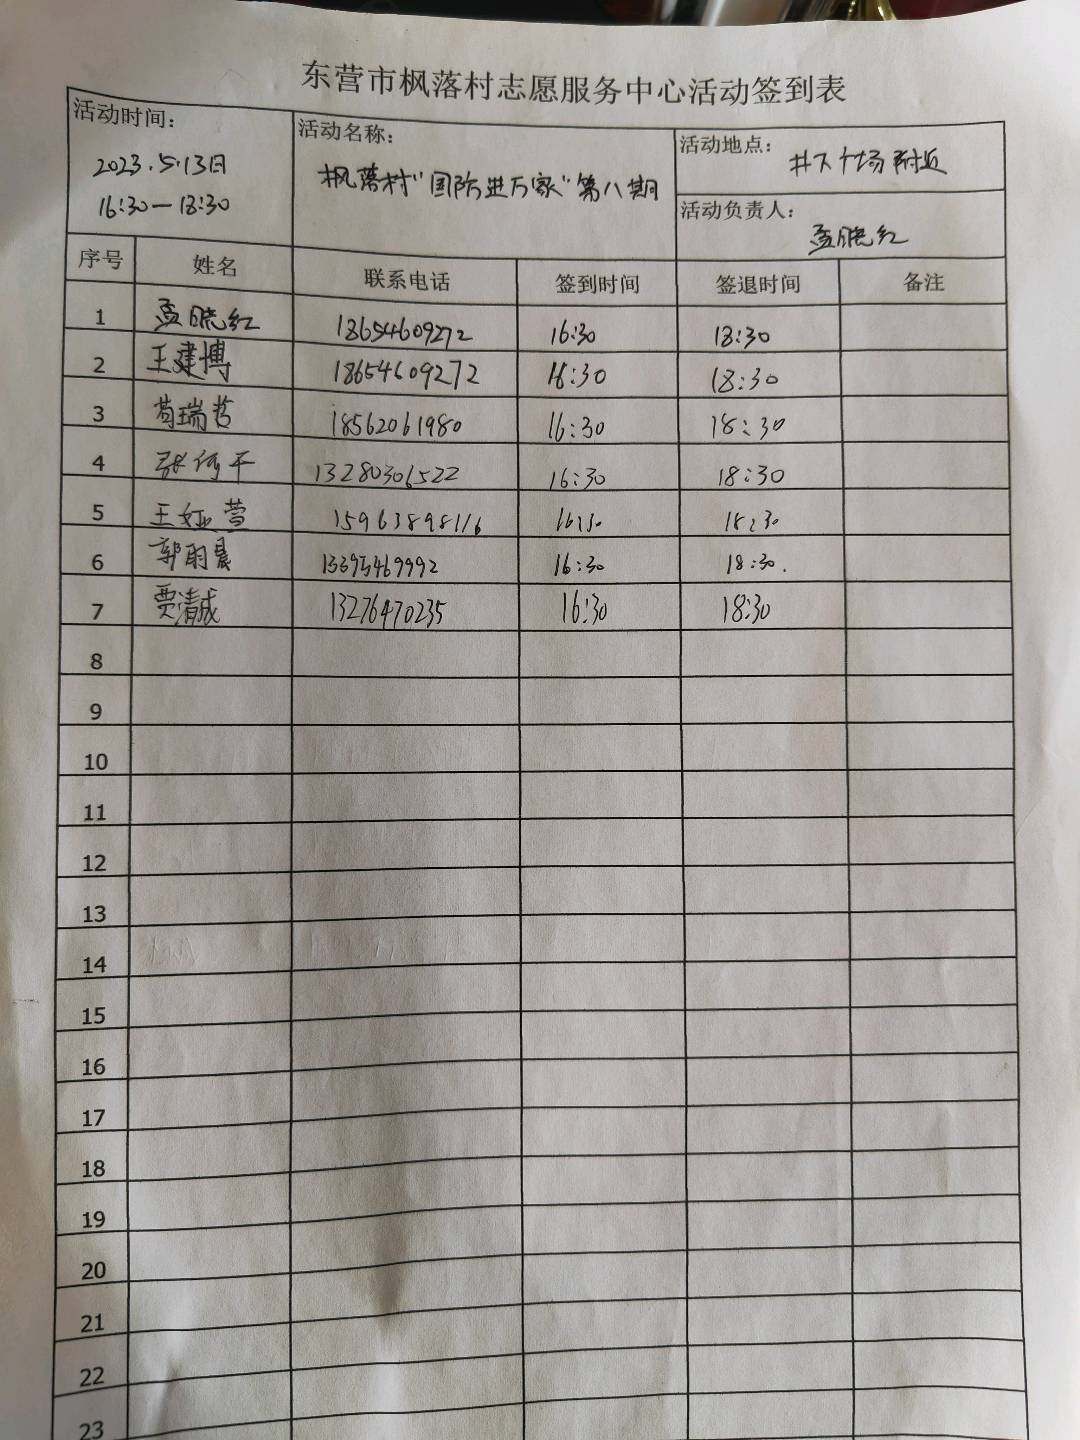 东营市枫落村志愿服务中心活动签到表
活动时间：
2023.5.13日
16:30—18:30
活动名称：
枫落村“国防进万家”第八期
活动地点：
井下广场附近
活动负责人：
孟晓红
序号 姓名 联系电话 签到时间 签退时间 备注
1 孟晓红 18654609272 16:30 18:30
2 王建博 18654609272 16:30 18:30
3 苟瑞哲 18562061980 16:30 18:30
4 张何千 13280306522 16:30 18:30
5 王娅萱 15963898116 16:30 18:30
6 郭雨晨 13395469992 16:30 18:30.
7 贾清成 13276470235 16:30 18:30
8
9
10
11
12
13
14
15
16
17
18
19
20
21
22
23